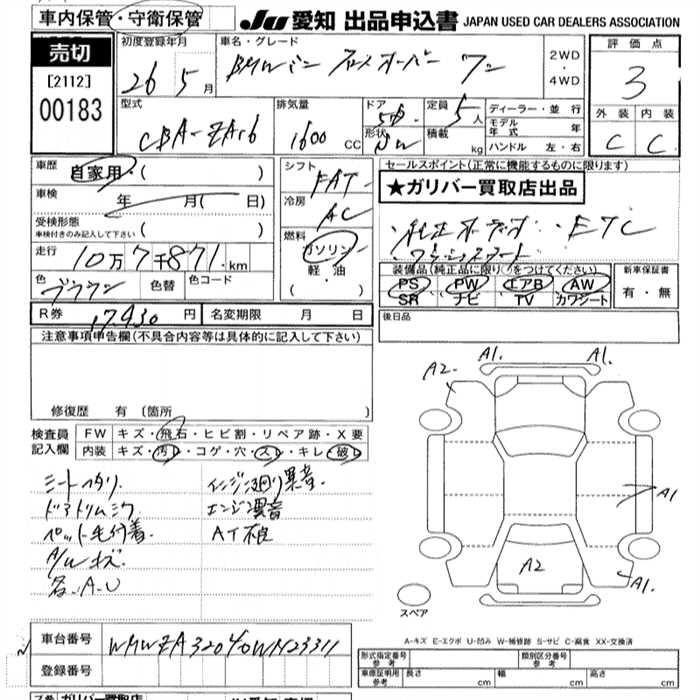 車内保管・守衛保管
JU 愛知 出品申込書 JAPAN USED CAR DEALERS ASSOCIATION
売切
[2112]
00183
初度登録年月
26 5月
車名・グレード
BMWミニ クロスオーバー ワン
2WD
・
4WD
評価点
3
外装 内装
C C
型式
CBA-ZA16
排気量
1600 CC
ドア
5
形状
定員
5人
積載
kg
ディーラー・並行
モデル年式 年
ハンドル 左・右
車歴
自家用・( )
車検
年 月( 日)
受検形態
車検付きのみ記入して下さい
( )
走行
10万7千871 km
色
ブラウン
色替
色コード
シフト
FAT
冷房
AC
燃料
ガソリン
軽・油
( ・ )
セールスポイント(正常に機能するものに限ります)
★ガリバー買取店出品
・純正オーディオ ・ETC
・プッシュスタート
装備品(純正品に限り○をつけてください)
PS PW エアB AW
SR ナビ TV カワシート
新車保証書
有・無
R券 17,930 円
名変期限 月 日
後日品
注意事項申告欄(不具合内容等は具体的に記入して下さい)
修復歴 有 (箇所 )
検査員
記入欄
FW キズ・飛石・ヒビ割・リペア跡・X要
内装 キズ・汚レ・コゲ・穴・スレ・キレ・破レ
シートヘタリ
ドアトリムシワ
ペット毛付着
A/Wキズ
各A・U
エンジン廻り異音
エンジン異音
AT不良
A2.
A1.
A1.
A1
A1.
A2
スペア
A-キズ E-エクボ U-凹み W-補修跡 S-サビ C-腐食 XX-交換済
車台番号
WMWZA32040WM23311
登録番号
形式指定番号
参考
類別区分番号
参考
車庫証明用
参考
長さ cm
幅 cm
高さ cm
ガリバー買取店